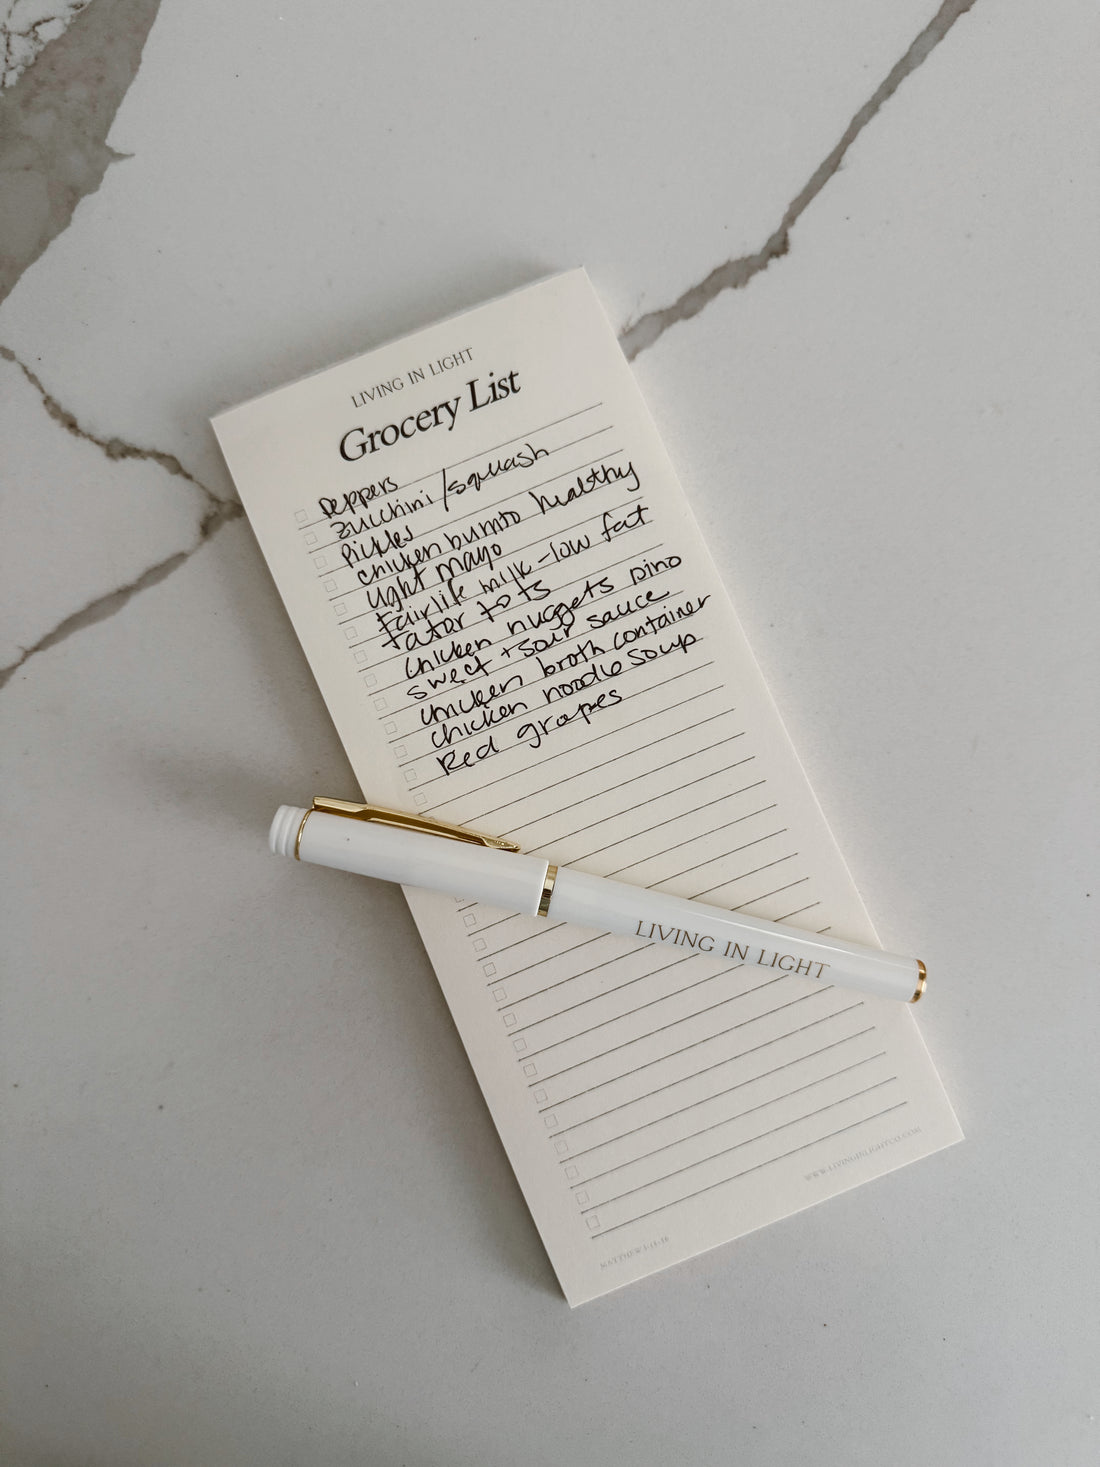 LIVING IN LIGHT
Grocery List
Peppers
zucchini/squash
Pickles
chicken burrito healthy
light mayo
Fairlife milk-low fat
tator tots
chicken nuggets dino
sweet + sour sauce
chicken broth container
chicken noodle soup
Red grapes
LIVING IN LIGHT
WWW.LIVINGINLIGHTCO.COM